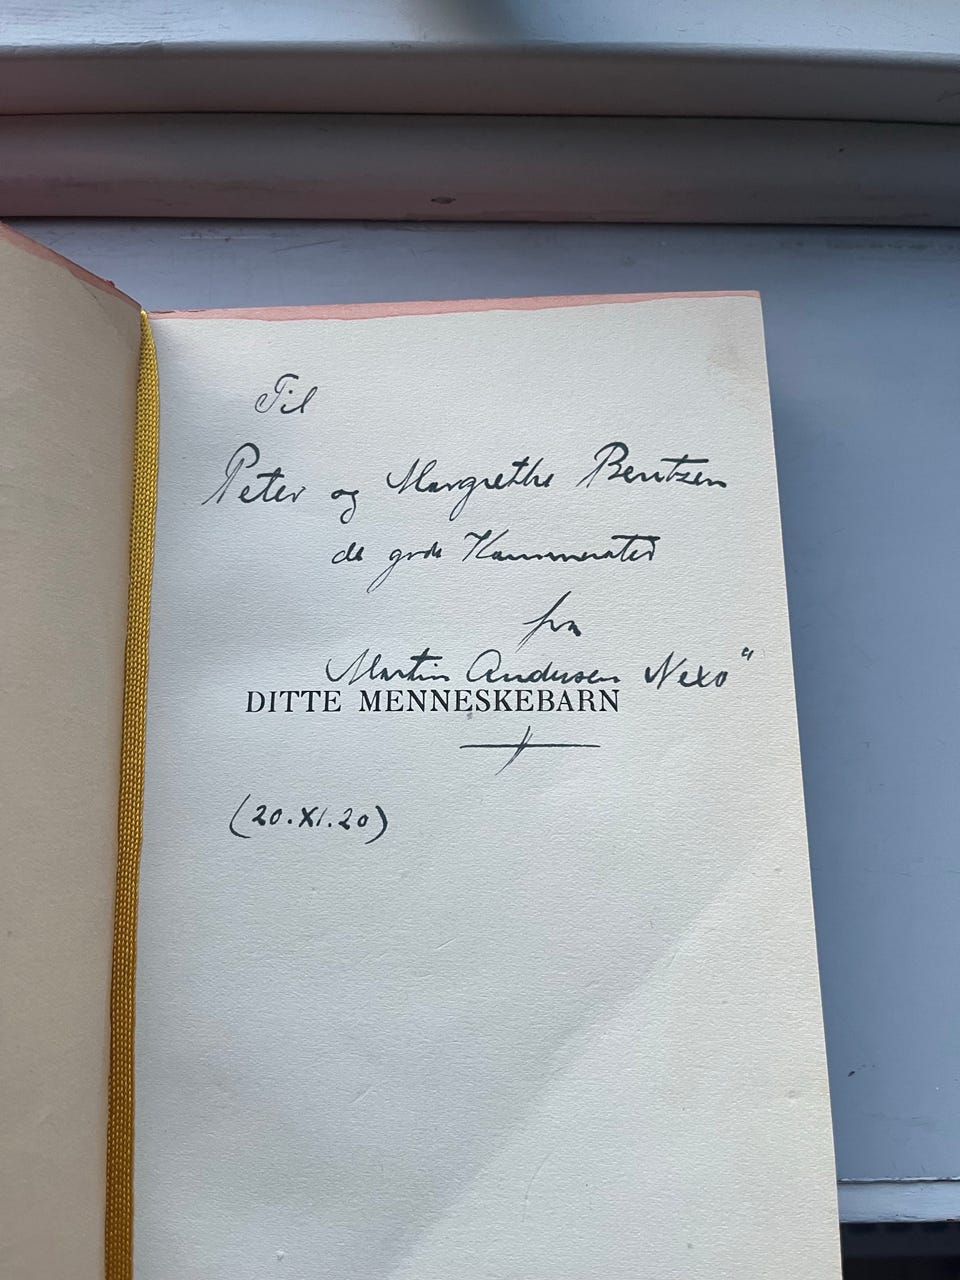 Til
Peter og Margrethe Bentzen
de gode Kammerater
fra
Martin Andersen Nexö
DITTE MENNESKEBARN
(20.XI.20)